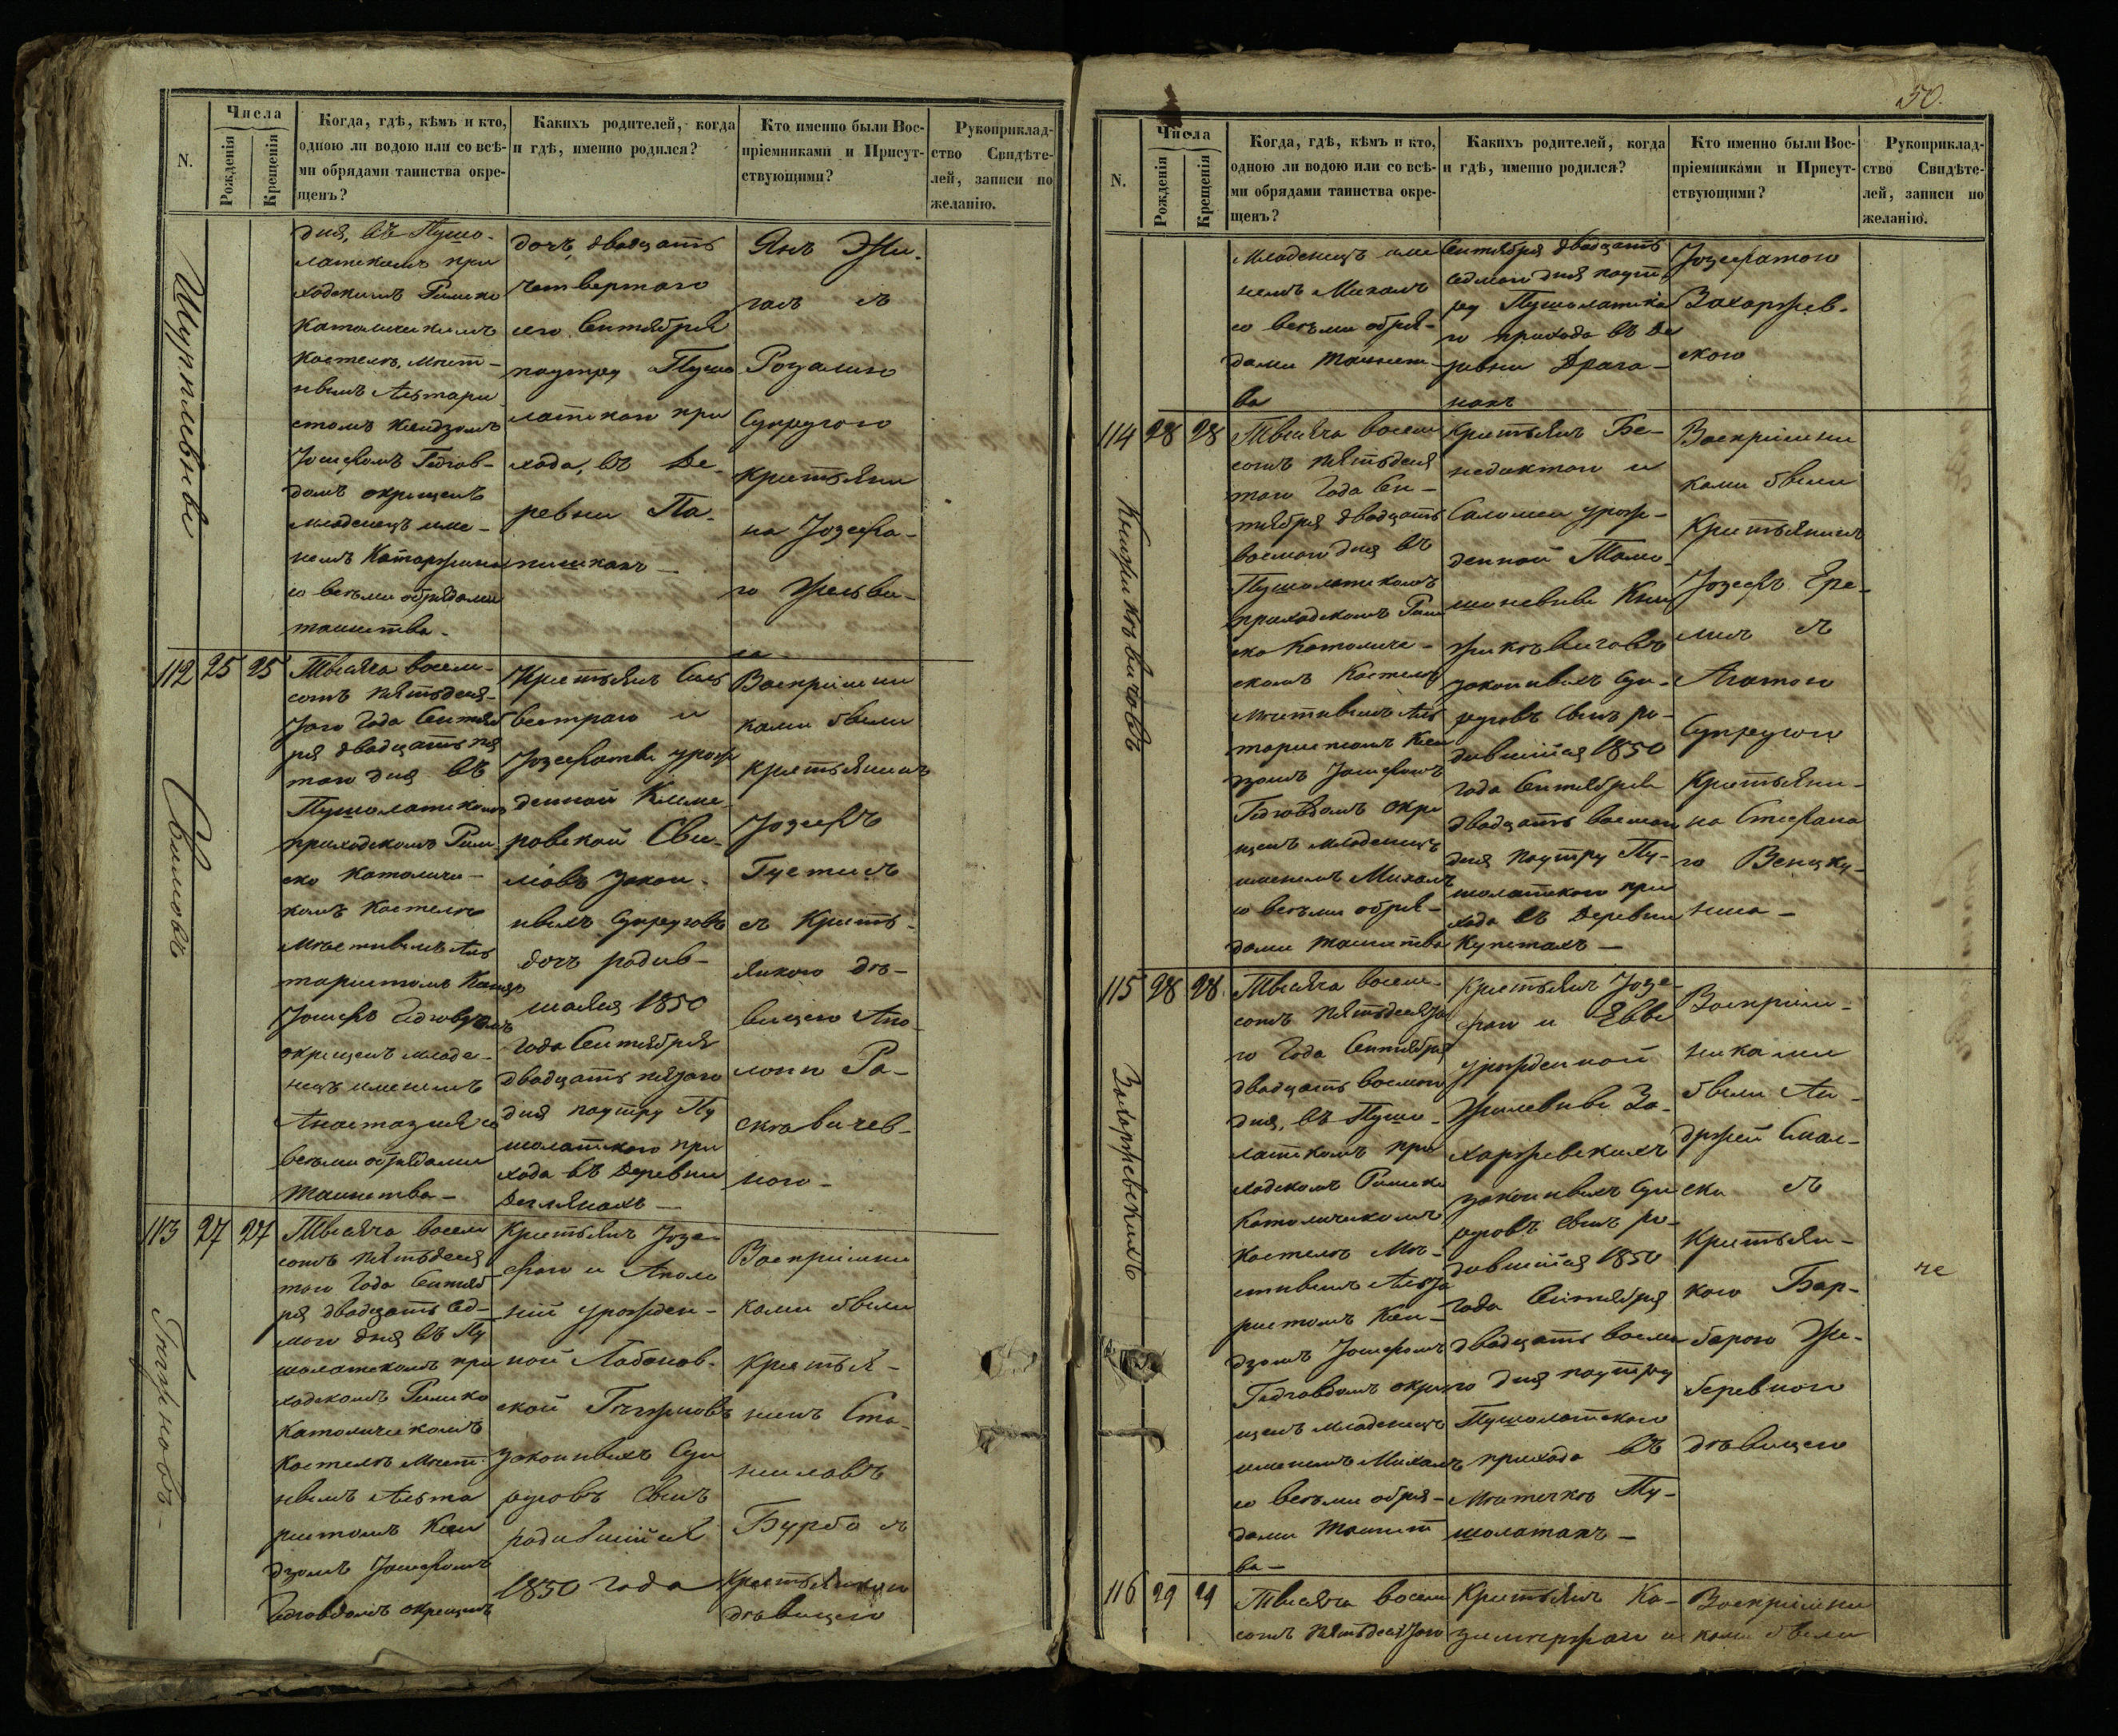 N.
Числа
Рожденія
Крещенія
Когда, гдѣ, кѣмъ и кто,
одною ли водою или со всѣ-
ми обрядами таинства окре-
щенъ?
Какихъ родителей, когда
и гдѣ, именно родился?
Кто именно были Вос-
пріемниками и Присут-
ствующими?
Рукоприклад-
ство Свидѣте-
лей, записи по
желанію.
дня, въ Пушо-
латскомъ при
ходскомъ Римско
Католическомъ
Костелѣ, Мѣст-
нымъ Альтари
стомъ Ксендзомъ
Іосифомъ Гедгов-
домъ окрещенъ
младенецъ име-
немъ Катаржина
со всѣми обрядами
таинства.
дочъ, двадцать
четвертаго
его Сентября
поутру Пушо
латскаго при
хода, въ Де-
ревни
Янъ
съ
Розалiею
Супругою
крестьяни
на Іозефа-
го
112
25
25
Тысяча восем-
сотъ пятьдеся-
таго Года Сентяб
ря двадцать пя
таго дня въ
Пушолатскомъ
приходскомъ Рим
ско Католиче-
комъ Костелѣ
Мѣстнымъ Аль
таристомъ Ксендз
Іосифъ Гедговдомъ
окрещенъ младе-
нецъ именемъ
Анастазия со
всѣми обрядами
таинства-
Крестьянъ Силь
вестраго и
Іозефаты урож
денной
Сви-
ловъ закон-
ныхъ Супруговъ
дочъ родив-
шаяся 1850
Года Сентября
двадцать пятаго
дня поутру Пу
шолатского при
хода въ Деревни
Деглянахъ-
Воспріемни
ками были
крестьянинъ
Іозефъ
съ Кресть-
янкою дѣ-
вицею Апо-
лоніи
113
27
27
Тысяча восем
сотъ пятьдеся
таго Года Сентяб
ря двадцать сед-
мого дня въ Пу
шолатскомъ при
ходскомъ Римско
Католическомъ
Костелѣ Мѣст-
нымъ Альта
ристомъ Ксен
дзомъ Іосифомъ
Гедговдомъ окрещенъ
Крестьянъ Іозе-
фаго и Аполо
ніи урожден-
ной Лабанов-
ской
законныхъ Суп
руговъ Сынъ
родившійся
1850 года
Воспріемни
ками были
Крестья-
нинъ Ста-
ниславъ
Бурба съ
Крестьянкою
дѣвицею
50.
N.
Числа
Рожденія
Крещенія
Когда, гдѣ, кѣмъ и кто,
одною ли водою или со всѣ-
ми обрядами таинства окре-
щенъ?
Какихъ родителей, когда
и гдѣ, именно родился?
Кто именно были Вос-
пріемниками и Присут-
ствующими?
Рукоприклад-
ство Свидѣте-
лей, записи по
желанію.
младенецъ име
немъ Михалъ
со всѣми обря-
дами таинст-
ва
Сентября двадцать
седмого дня поут-
ру Пушолатска
го прихода въ Де
ревни Драга-
нахъ
Іозефатою
Захаржев-
скою
114
28
28
Тысяча восем
сотъ пятьдеся
таго Года Сен-
тября двадцать
восмаго дня въ
Пушолатскомъ
приходскомъ Рим
ско Католиче-
скомъ Костелѣ
Мѣстнымъ Аль
таристомъ Ксен
дзомъ Іосифомъ
Гедговдомъ окре
щенъ младенецъ
именемъ Михалъ
со всѣми обря-
дами таинства
Крестьянъ Бе-
недиктаго и
Саломеи урож-
денной
законныхъ Суп-
руговъ Сынъ ро-
дившійся 1850
года Сентября
двадцать восмого
дня поутру Пу-
шолатского при
хода въ Деревни
Купетахъ-
Воспріемни
ками были
Крестьянинъ
Іозефъ
съ
Агатою
Супругою
Крестьяни-
на Стефана
го
115
28
28
Тысяча восем-
сотъ пятьдесята
го Года Сентября
двадцать восмого
дня, въ Пушо-
латскомъ при
ходскомъ Римско
Католическомъ
Костелѣ Мѣ-
стнымъ Альта
ристомъ Ксен-
дзомъ Іосифомъ
Гедговдомъ окре
щенъ младенецъ
именемъ Михалъ
со всѣми обря-
дами таинст
ва-
Крестьянъ Іозе-
фаго и Еввы
урожденной
За-
харжевскихъ
законныхъ Суп
руговъ Сынъ ро-
дившійся 1850
Года Сентября
двадцать восма
го дня поутру
Пушолатскаго
прихода въ
Мѣстечкѣ Пу-
шолатахъ-
Воспріем-
никами
были Ан-
држей
съ
Крестьян-
кою Бар-
барою
дѣвицею
116
29
29
Тысяча восем
сотъ пятьдесятаго
Крестьянъ Ка-
зимержаго и
Воспріемни
ками были